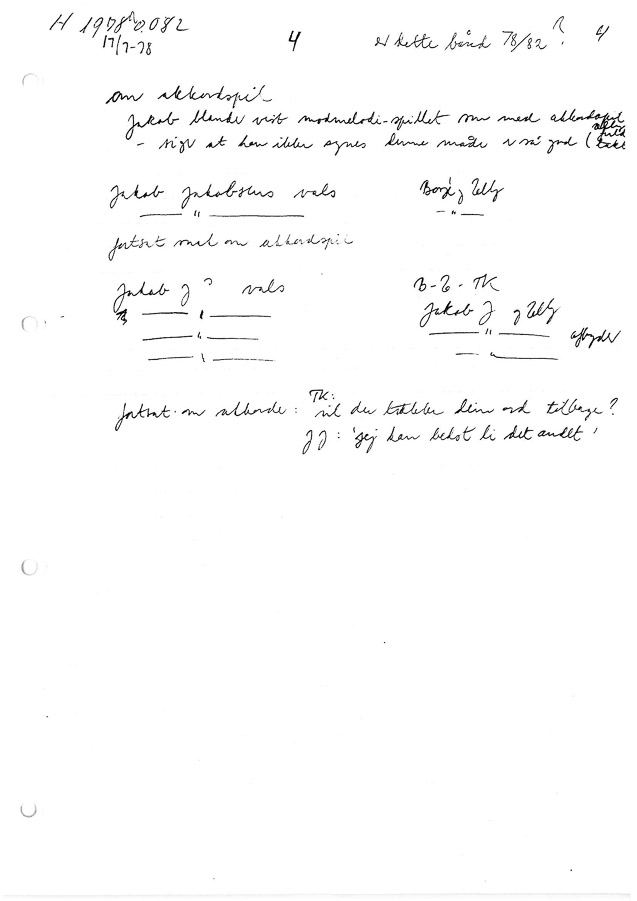 H 1978 0082 4 er dette bånd 78/82? 4
17/7-78
om akkordspil
Jakob blende modmelodi-spillet som med akkordspil
- siger at han ikke synes denne måde er så god (
Jakob Jakobsens vals Børge og Telly
—— " —— — " —
fortsat snak om akkordspil
Jakob J ? vals B-T-TK
—— " —— Jakob J og Telly
—— " —— —— " —— afbryder
—— " —— — " ——
TK:
fortsat om akkorde: vil du trække dine ord tilbage?
JJ: 'jeg kan bedst li det andet'